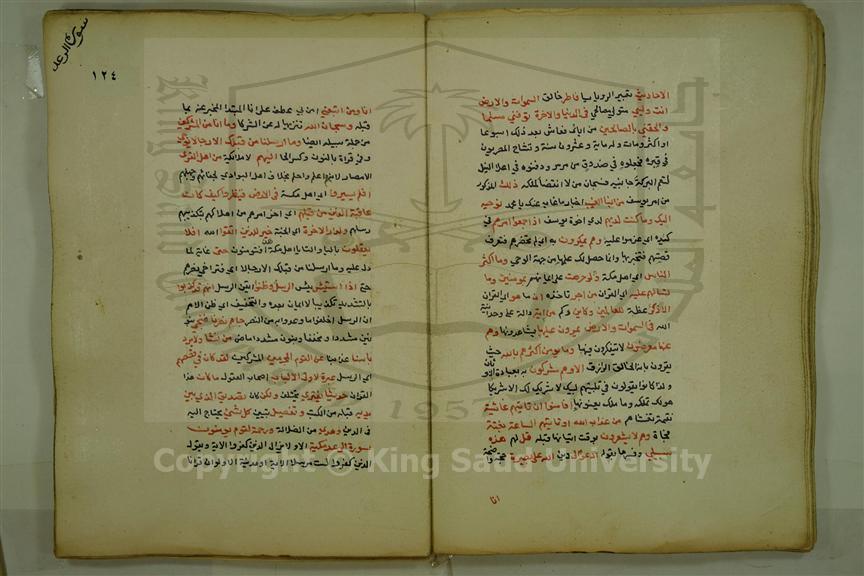 الاحاديث تعبير الرويا يا فاطر خالق السموات والارض
انت وليي متولي مصالحي في الدنيا والاخرة توفني مسلما
والحقني بالصالحين من اباى فعاش بعد ذلك اسبوعا
او اكثر ومات وله ماية وعشرون سنة وتشاح المصريون
في قبره فجعلوه في صندوق من مرمر ودفنوه في اعلا النيل
لتعم البركة جانبيه فسبحان من لا انقضا لملكه ذلك المذكور
من امر يوسف من انبا الغيب اخبار ما غاب عنك يا محمد نوحيه
اليك وما كنت لديهم لدى اخوة يوسف اذ اجمعوا امرهم في
كيده اي عزموا عليه وهم يمكرون به اي لم تحضرهم فتعرف
قصتهم فتخبر بها وانما حصل لك علمها من جهة الوحي وما اكثر
الناس اي اهل مكة ولو حرصت على ايمانهم بمومنين وما
تسالهم عليه اي القران من اجر تاخذه ان ما هو اي القران
الا ذكر عظة للعالمين وكاين وكم من اية دالة على وحدانية
الله في السموات والارض يمرون عليها يشاهدونها وهم
عنها معرضون لا يتفكرون فيها وما يومن اكثرهم بالله حيث
يقرون بانه الخالق الرازق الا وهم مشركون به بعبادة الاوثان
ولذا كانوا يقولون في تلبيتهم لبيك لا شريك لك الا شريكا
هو لك تملكه وما ملك يعنونها افامنوا ان تاتيهم غاشية
نقمة تغشاهم من عذاب الله او تاتيهم الساعة بغتة
فجاة وهم لا يشعرون بوقت اتيانها قبله قل لهم هذه
سبيلي وفسرها بقوله ادعو الى دين الله على بصيرة حجة واضحة
انا
سورة الرعد
١٢٤
انا ومن اتبعني امن بي عطف على انا المبتدا المخبر عنه بما
قبله وسبحان الله تنزيها له عن الشركا وما انا من المشركين
من جملة سبيله ايضا وما ارسلنا من قبلك الا رجالا يوحى
وفي قراة بالنون وكسر الحا اليهم لا ملائكة من اهل القرى
الامصار لانهم اعلم واحلم بخلاف اهل البوادي لجفائهم وجهلهم
افلم يسيروا اي اهل مكة في الارض فينظروا كيف كان
عاقبة الذين من قبلهم اي اخر امرهم من اهلاكهم بتكذيبهم
رسلهم ولدار الاخرة اي الجنة خير للذين اتقوا الله افلا
يعقلون باليا والتا يا اهل مكة هذا فتومنون حتى غاية لما
دل عليه وما ارسلنا من قبلك الا رجالا اي فتراخى نصرهم
حتى اذا استيئس يئس الرسل وظنوا ايقن الرسل انهم قد كذبوا
بالتشديد تكذيبا لا ايمان بعده والتخفيف اي ظن الامم
ان الرسل اخلفوا ما وعدوا به من النصر جاهم نصرنا فننجي
مشددا ومخففا وبنون مشددا ماض من نشا ولا يرد
باسنا عذابنا عن القوم المجرمين المشركين لقد كان في قصصهم
اي الرسل عبرة لاولي الالباب اصحاب العقول ما كان هذا
القران حديثا يفترى يختلق ولكن كان تصديق الذي بين
يديه قبله من الكتب وتفصيل تبيين كل شيئ يحتاج اليه
في الدين وهدى من الضلالة ورحمة لقوم يومنون
سورة الرعد مكية الا ولا يزال الذين كفروا الاية ويقول
الذين كفروا لست مرسلا الاية او مدنية الا ولو ان قرانا
Copyright © King Saud University
1957